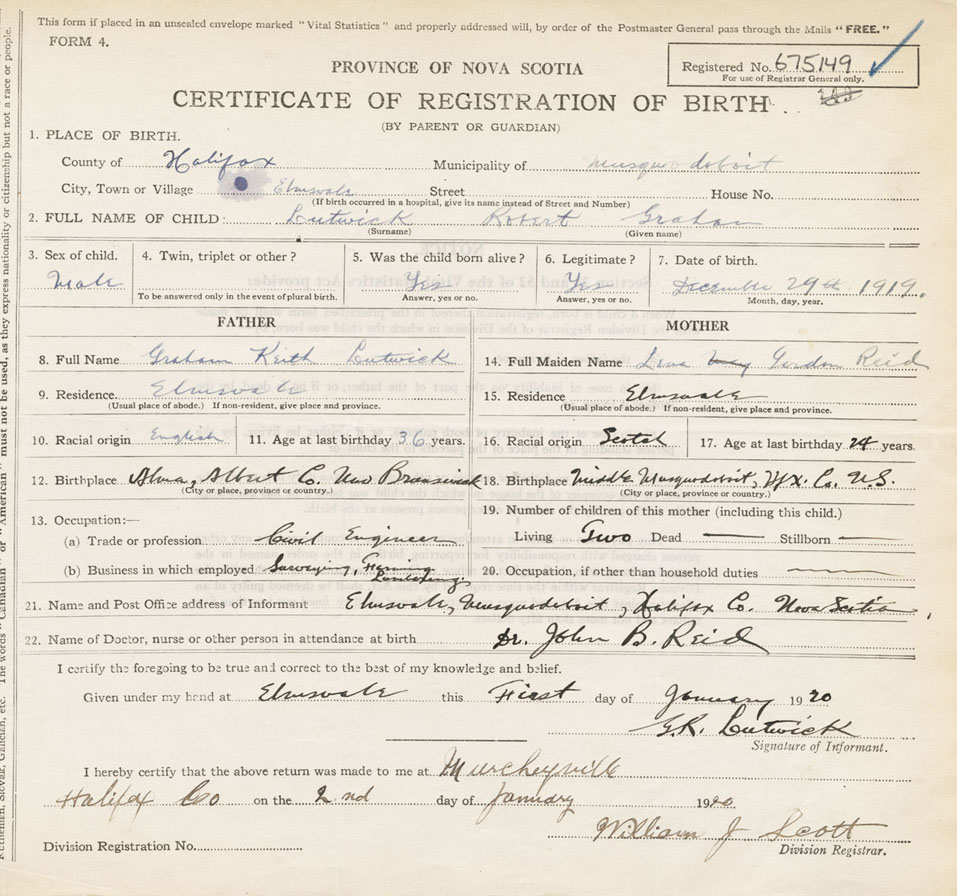 This form if placed in an unsealed envelope marked "Vital Statistics" and properly addressed will, by order of the Postmaster General pass through the Mails "FREE."
FORM 4.
Registered No. 675149
For use of Registrar General only.
PROVINCE OF NOVA SCOTIA
CERTIFICATE OF REGISTRATION OF BIRTH
(BY PARENT OR GUARDIAN)
1. PLACE OF BIRTH.
County of Halifax Municipality of Musquodoboit
City, Town or Village Elmsvale Street House No.
(If birth occurred in a hospital, give its name instead of Street and Number)
2. FULL NAME OF CHILD: Lutwick Robert Graham
(Surname) (Given name)
3. Sex of child. 4. Twin, triplet or other? 5. Was the child born alive? 6. Legitimate? 7. Date of birth.
Male Yes Yes December 29th 1919.
To be answered only in the event of plural birth. Answer, yes or no. Answer, yes or no. Month, day, year.
FATHER MOTHER
8. Full Name Graham Keith Lutwick 14. Full Maiden Name Lena Gordon Reid
9. Residence. Elmsvale 15. Residence Elmsvale
(Usual place of abode.) If non-resident, give place and province. (Usual place of abode.) If non-resident, give place and province.
10. Racial origin English 11. Age at last birthday 36 years. 16. Racial origin Scotch 17. Age at last birthday 24 years.
12. Birthplace Alma, Albert C. New Brunswick 18. Birthplace Middle Musquodoboit, Hfx. Co. N.S.
(City or place, province or country.) (City or place, province or country.)
19. Number of children of this mother (including this child.)
13. Occupation:—
(a) Trade or profession Civil Engineer Living Two Dead — Stillborn —
(b) Business in which employed Surveying, Farming Lumbering 20. Occupation, if other than household duties —
21. Name and Post Office address of Informant Elmsvale, Musquodoboit, Halifax Co. Nova Scotia,
22. Name of Doctor, nurse or other person in attendance at birth Dr. John B. Reid
I certify the foregoing to be true and correct to the best of my knowledge and belief.
Given under my hand at Elmsvale this First day of January 1920
G.K. Lutwick
Signature of Informant.
I hereby certify that the above return was made to me at Murcheyville
Halifax Co on the 2nd day of January 1920
William J Scott
Division Registrar.
Division Registration No.